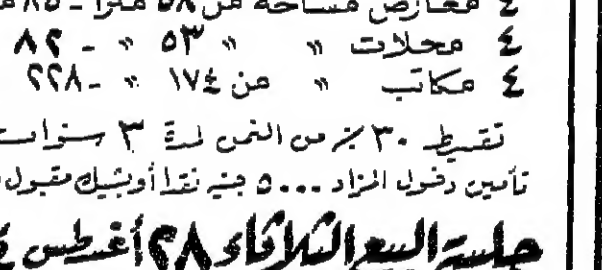 ٤ معارض مساحة من ٥٨ مترا - ٨٥
٤ محلات " " ٥٣ " - ٨٢
٤ مكاتب " من ١٧٤ " - ٢٢٨
تقسيط ٣٠٪ من الثمن لمدة ٣ سنوات
تأمين دخول المزاد ٥٠٠٠ جنيه نقدا أو بشيك مقبول
جلسة البيع الثلاثاء ٢٨ أغسطس